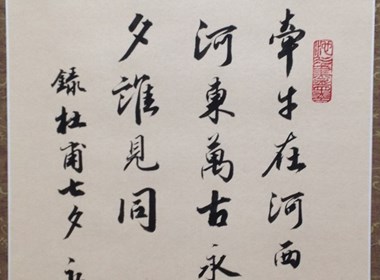 牵牛在河西
河東萬古永
夕誰見同
録杜甫七夕